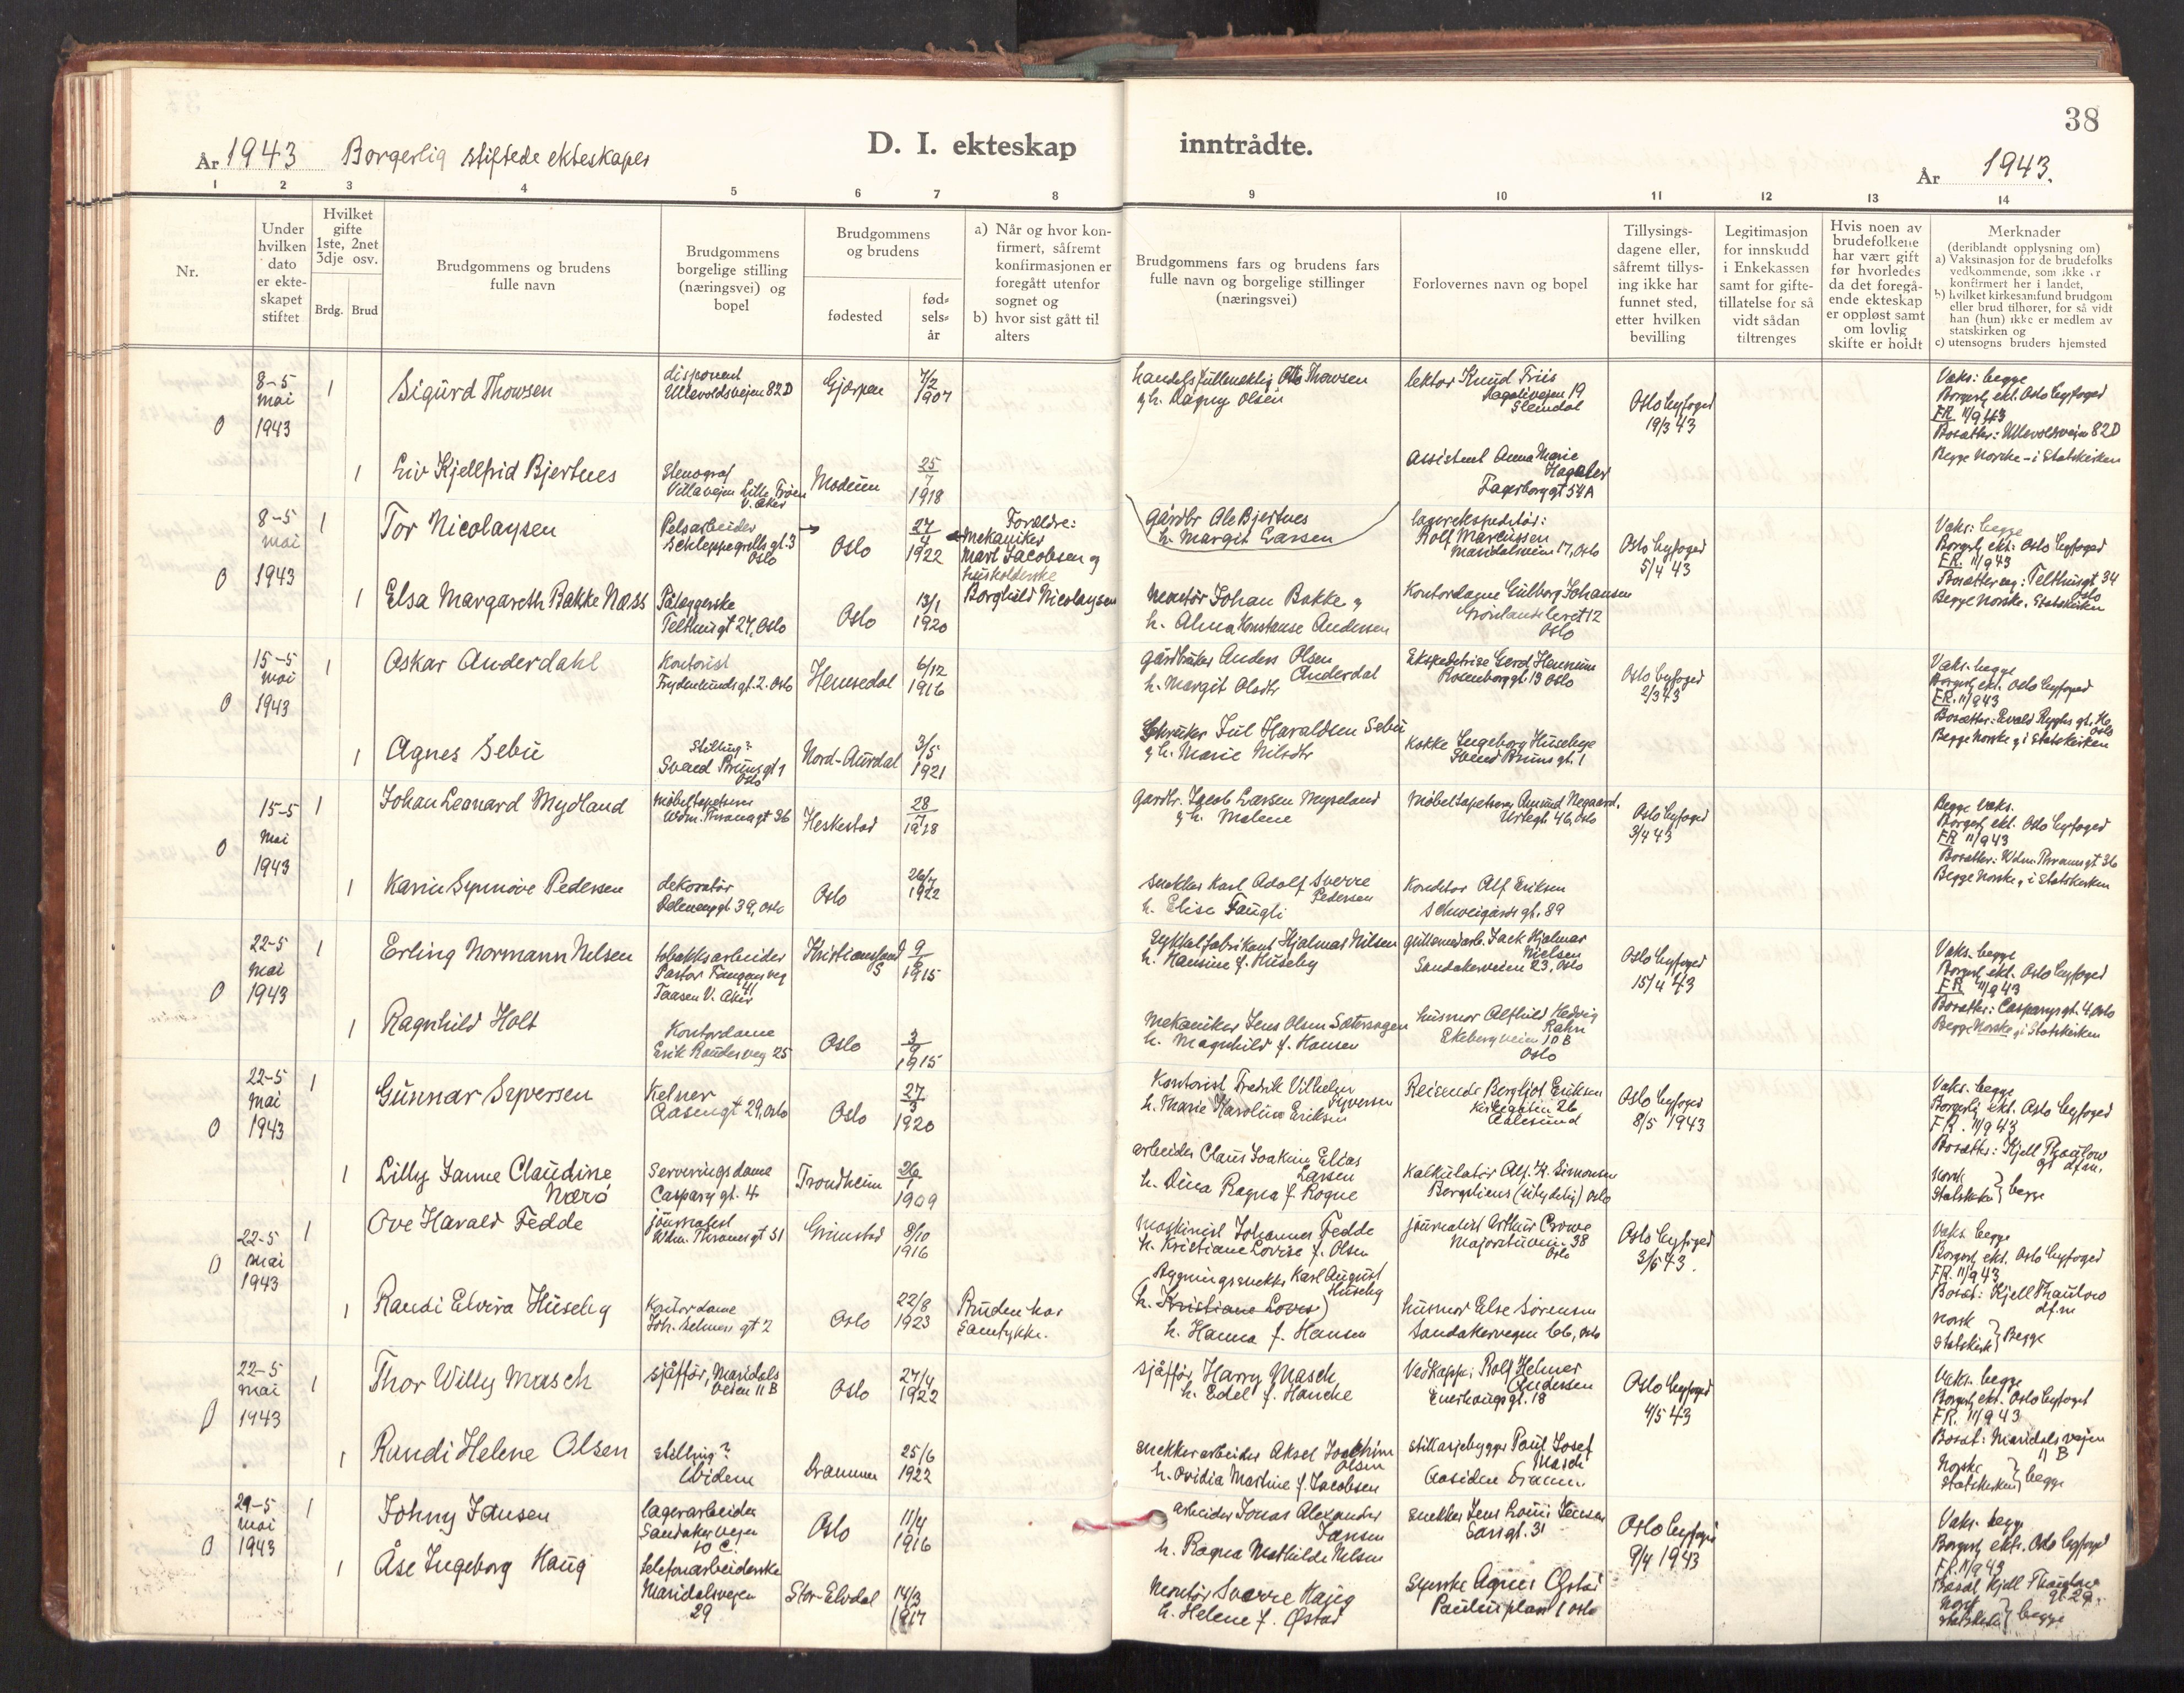 38
År 1943 Borgerlig stiftede ekteskaper
D. I. ekteskap inntrådte.
År 1943.
1 2 3 4 5 6 7 8 9 10 11 12 13 14
Nr.
Under
hvilken
dato
er ekte-
skapet
stiftet
Hvilket
gifte
1ste, 2net
3dje osv.
Brdg. Brud
Brudgommens og brudens
fulle navn
Brudgommens
borgelige stilling
(næringsvei) og
bopel
Brudgommens
og brudens
fødested
fød-
sels-
år
a) Når og hvor kon-
firmert, såfremt
konfirmasjonen er
foregått utenfor
sognet og
b) hvor sist gått til
alters
Brudgommens fars og brudens fars
fulle navn og borgelige stillinger
(næringsvei)
Forlovernes navn og bopel
Tillysings-
dagene eller,
såfremt tillys-
ing ikke har
funnet sted,
etter hvilken
bevilling
Legitimasjon
for innskudd
i Enkekassen
samt for gifte-
tillatelse for så
vidt sådan
tiltrenges
Hvis noen av
brudefolkene
har vært gift
før hvorledes
da det foregå-
ende ekteskap
er oppløst samt
om lovlig
skifte er holdt
Merknader
(deriblandt opplysning om)
a) Vaksinasjon for de brudefolks
vedkommende, som ikke er
konfirmert her i landet,
b) hvilket kirkesamfund brudgom
eller brud tilhører, for så vidt
han (hun) ikke er medlem av
statskirken og
c) utensogns bruders hjemsted
8-5
mai
0 1943
1
Sigurd Thowsen
disponent
Ullevoldsveien 82D
Gjerpen
7/2
1907
handelsfullmektig Otto Thowsen
g h. Dagny Olsen
lektor Knud Friis
19
Slemdal
Oslo byfoged
19/3 43
Vaks: begge
Borgerl. ekt. Oslo byfoged
FR. 11/9 43
Bosætter: Ullevoldsveien 82D
Begge Norske - i Statskirken
1
Liv Kjellfrid Bjertnes
Stenograf
Villaveien Lille Frøen
V. Aker
Modum
25
7
1918
Assistent Anna Marie
Fagerborggt 54A
gårdbr Ole Bjertnes
h. Margit Larsen
8-5
mai
0 1943
1
Tor Nicolaysen
Pelsarbeider
Schleppegrells gt. 3
Oslo
Oslo
27
4
1922
Forældre:
mekaniker
Marl Jacobsen og
husholderske
Borghild Nicolaysen
lagerekspeditør:
Rolf Marcussen
Maridalsveien 17, Oslo
Oslo byfoged
5/4 43
Vaks: begge
Borgerl. ekt: Oslo byfoged
FR. 11/9 43
Bosætter seg: Telthusgt 34
Oslo
Begge Norske. Statskirken
1
Elsa Margareth Bakke Næss
Pålæggerske
Telthusgt 27, Oslo
Oslo
13/1
1920
Montør Johan Bakke g
h. Alma Konstanse Andersen
Kontordame Gulborg Johansen
Grønlandsleret 12
Oslo
15-5
mai
0 1943
1
Oskar Anderdahl
Kontorist
Frydenlundsgt. 2. Oslo
Hemsedal
6/12
1916
gårdbruker Anders Olsen
Anderdal
h. Margit Olsdtr
Ekspeditrise Gerd Hennum
Rosenborggt. 19 Oslo
Oslo byfoged
2/3 43
Vaks. begge
Borgerl. ekt. Oslo byfoged
FR. 11/9 43
Bosætter: Evald Ryghs gt. 16
Oslo
Begge Norske g i Statskirken
1
Agnes Sebu
Stilling?
Svend Bruns gt 1
Oslo
Nord-Aurdal
3/5
1921
Gbruker Jul Haraldsen Sebu
g h. Marie Nilsdtr
Kokke Ingeborg Huseby
Svend Bruns gt. 1
15-5
mai
0 1943
1
Johan Leonard Mydland
Møbeltapetserer
Wdm. Thranesgt 36
Heskestad
28
7
1918
Gardbr. Jacob Larsen Myseland
g h. Malene
Møbeltapetserer Amund Negaard.
Urtegt. 46, Oslo
Oslo byfoged
3/4 43
Begge Vaks.
Borgerl. ekt. Oslo byfoged
FR. 11/9 43
Bosætter: Wdm. Thranesgt 36
Begge Norske, i Statskirken
1
Karin Synnøve Pedersen
dekoratør
39, Oslo
Oslo
26/7
1922
snekker Karl Adolf Sverre
Pedersen
h. Elise Faugli
Konditor Alf Eriksen
Schweigårds gt. 89
22-5
mai
0 1943
1
Erling Normann Nilsen
tobakksarbeider
Pastor Fangens veg
41
Taasen V. Aker
Kristiansand
S
9
6
1915
Sykkelfabrikant Hjalmar Nilsen
h. Hansine f. Huseby
gullsmedarb. Jack Hjalmar
Nielsen
Sandakerveien 23, Oslo
Oslo byfoged
15/4 43
Vaks. begge
Borgerl. ekt. Oslo byfoged
FR. 11/9 43
Bosætter: Casparys gt. 4, Oslo
Begge Norske g i Statskirken
1
Ragnhild Holt
Kontordame
Erik Raudes veg 25
Oslo
3
9
1915
Mekaniker Jens Olsen Sæterhagen
h. Magnhild f. Hansen
husmor Alfhild Hedvig
Rahn
Ekebergveien 10 B
Oslo
22-5
mai
0 1943
1
Gunnar Syversen
Kelner
Aasengt 29, Oslo
Oslo
27
3
1920
Kontorist Fredrik Vilhelm
Syversen
h. Marie Karoline Eriksen
Reisende Bergljot Eriksen
Kirkegaten 26
Aalesund
Oslo byfoged
8/5 1943
Vaks. begge
Borgerli ekt. Oslo byfoged
FR. 11/9 43
Bosætter: Kjell Thaulow
gt dfm.
Norsk
Statskirken } begge
1
Lilly Janne Claudine
Nærø
Serveringsdame
Caspary gt. 4
Trondheim
26
1
1909
arbeider Claus Joakim Elias
Larsen
h. Dina Ragna f. Rogne
Kalkulatør Alf. K. Simonsen
Bergsliens (utydelig) Oslo
22-5
mai
0 1943
1
Ove Harald Fedde
journalist
Wdm. Thranesgt 51
Grimstad
8/10
1916
Maskinist Johannes Fedde
h. Kristiane Lovise f. Olsen
journalist Arthur Crowe
Majorstuvn. 38
Oslo
Oslo byfoged
3/5 43.
Vaks. begge
Borgerl. ekt. Oslo byfoged
FR. 11/9 43
Bosat: Kjell Thaulow
dfm
Norsk
Statskirk } Begge
1
Randi Elvira Huseby
Kontordame
Joh. Selmers gt 2
Oslo
22/8
1923
Bruden har
Samtykke.
Bygningssnekker Karl August
Huseby
h. Kristiane Lovis)
h. Hanna f. Hansen
husmor Else Sørensen
Sandakervegen 66, Oslo
22-5
mai
0 1943
1
Thor Willy Masch
sjåffør, Maridals
veien 11 B
Oslo
27/4
1922
sjåffør Harry Masch
h. Edel f. Hancke
Vedkapp: Rolf Helmer
Andersen
Enerhauggt. 18
Oslo byfoged
4/5 43
Vaks. begge
Borgerl. ekt. Oslo byfoged
FR. 11/9 43
Bosat: Maridalsvejen
11 B
Norske
Statskirken } begge
1
Randi Helene Olsen
stilling?
ibidem
Drammen
25/6
1922
snekkerarbeider Aksel Joachim
Olsen
h. Ovidia Martine f. Jacobsen
stillasjebygger Paul Josef
Masch
Aasiden Drammen
29-5
mai
0 1943
1
Johny Jansen
lagerarbeider
Sandakervejen
10 C.
Oslo
11/4
1916
arbeider Jonas Alexander
Jansen
h. Ragna Mathilde Nilsen
snekker Jens Louis Jensen
Sarsgt. 31
Oslo byfoged
9/4 1943
Vaks. begge
Borgerl. ekt. Oslo byfoged
FR. 11/9 43
Bosat Kjell Thaulow
gt. 29.
Norsk
statskirken } begge
1
Åse Ingeborg Haug
telefonarbeiderske
Maridalsvejen
29
Stor-Elvdal
14/3
1917
Montør Sverre Haug
h. Helene f. Øgstad
Syerske Agnes Øgstad
Paulus plass 1 Oslo